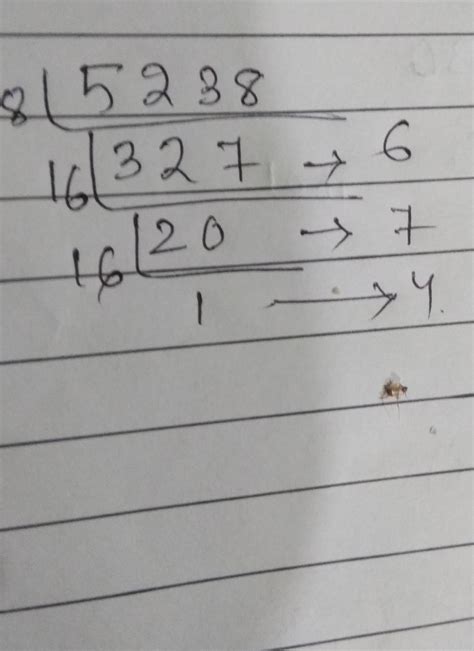 8 5238
16 327 → 6
16 20 → 7
1 → 4.